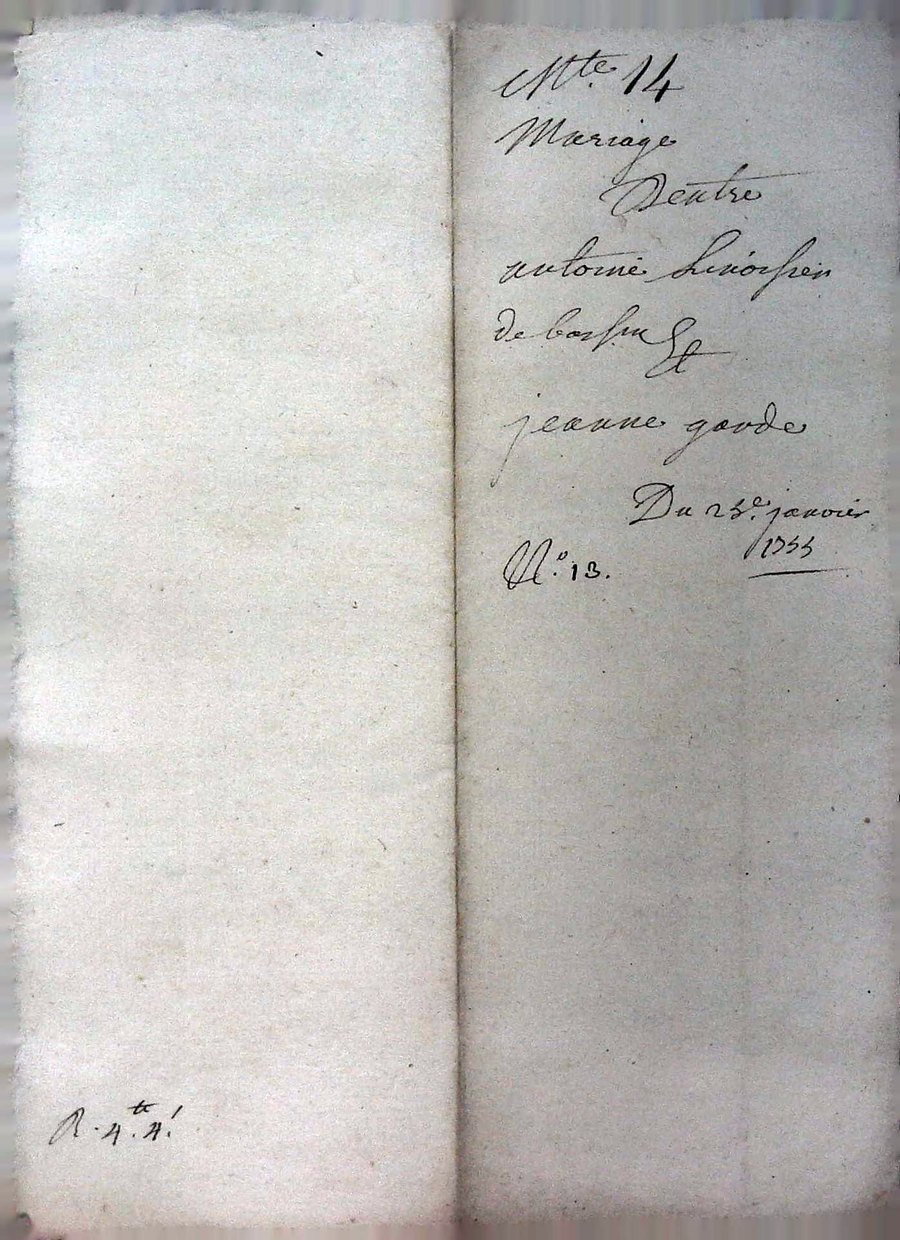 Nte. 14
Mariage
Dentre
antoine Linossier
de bassin Et
jeanne garde
Du 25e. janvier
1755
N.o 13.
R. 4.tt 4.s